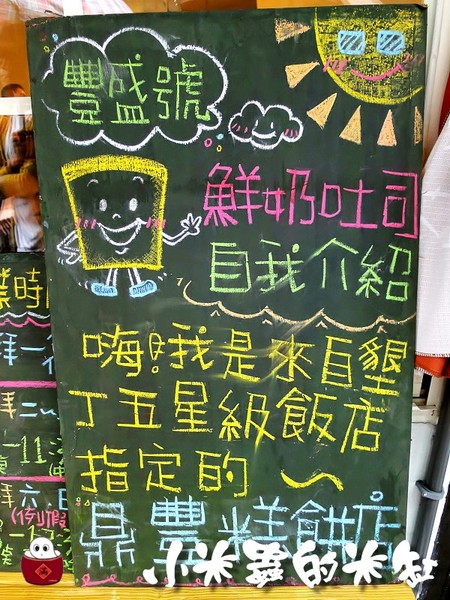 豐盛號
鮮奶吐司
自我介紹
嗨!我是來自墾
丁五星級飯店
指定的~
鼎豐糕餅店
業時
拜一
拜二~
-11
拜六日
(例假
小米蟲的米缸